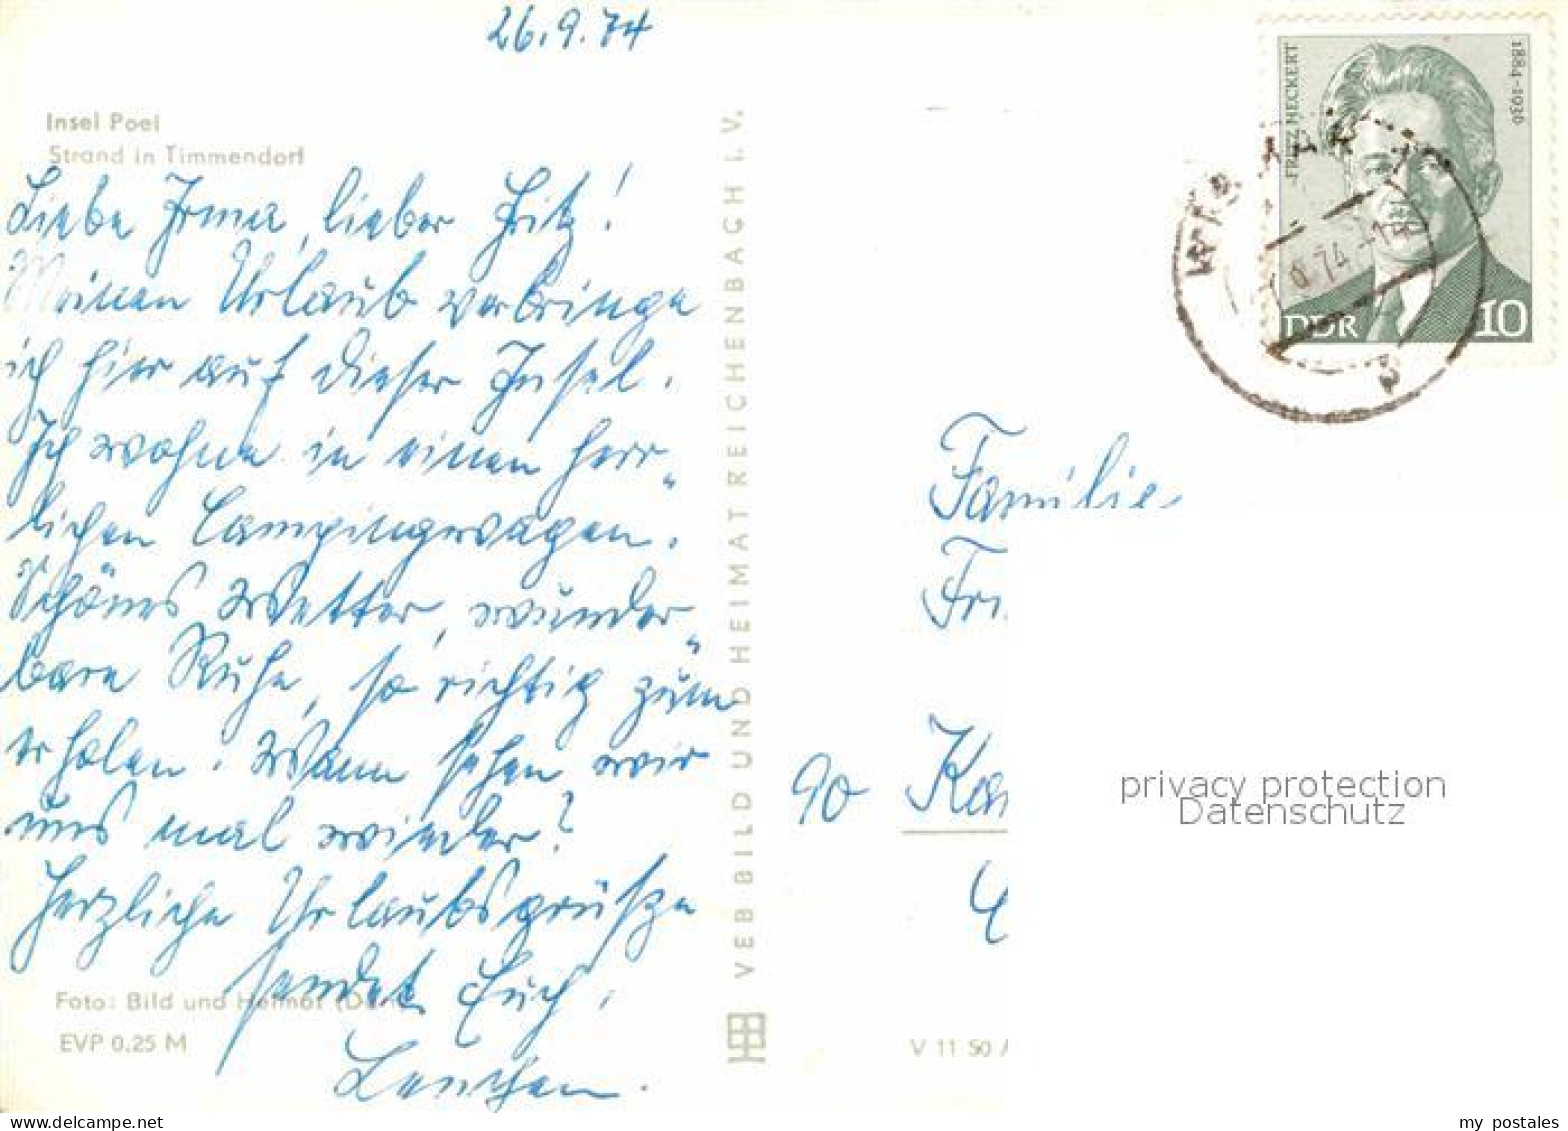 26.9.74
Insel Poel
Strand in Timmendorf
Liebe Irma, lieber Fritz!
Meinen Urlaub verbringe
ich hier auf dieser Insel.
Ich wohne in einen herr„
lichen Campingwagen.
Schönes Wetter, wunder„
bare Ruhe, so richtig zum
erholen. Wann sehen wir
uns mal wieder?
Herzliche Urlaubsgrüße
sendet Euch,
Lenchen.
Foto: Bild und Heimat
EVP 0,25 M
VEB BILD UND HEIMAT REICHENBACH I. V.
FRITZ HECKERT
1884-1936
DDR
10
Familie
90
V 11 50
privacy protection
Datenschutz
my postales